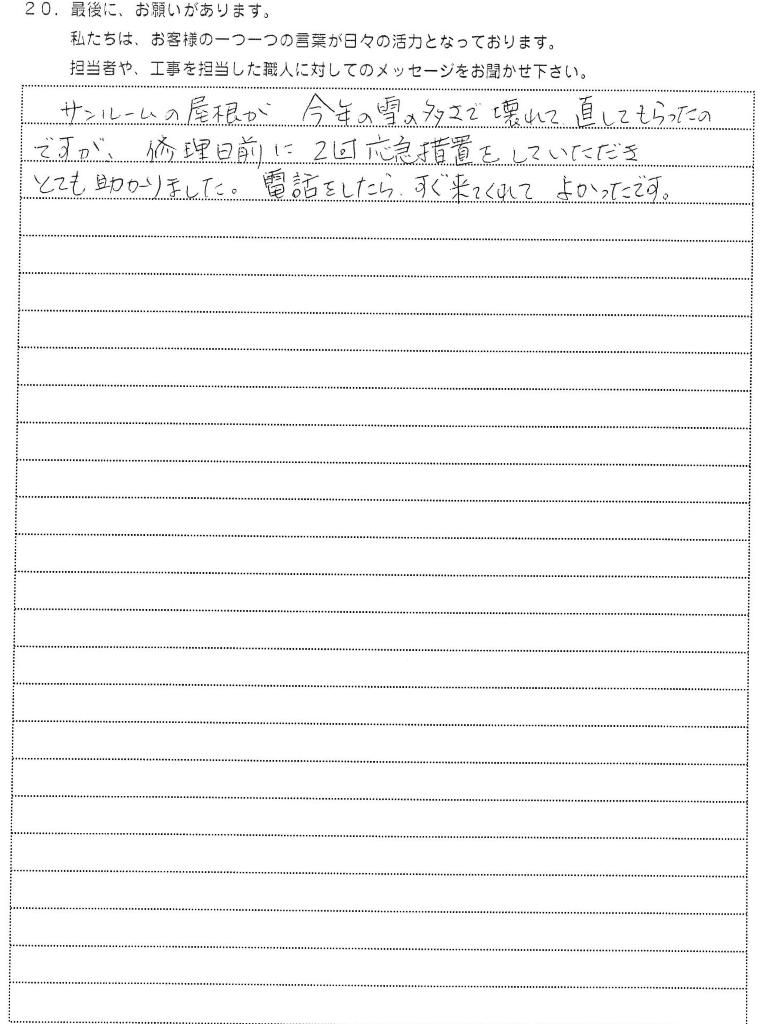 20．最後に、お願いがあります。
私たちは、お客様の一つ一つの言葉が日々の活力となっております。
担当者や、工事を担当した職人に対してのメッセージをお聞かせ下さい。
サンルームの屋根が 今年の雪の多さで壊れて、直してもらったの
ですが、修理日前に2回応急措置をしていただき
とても助かりました。電話をしたら、すぐ来てくれて よかったです。